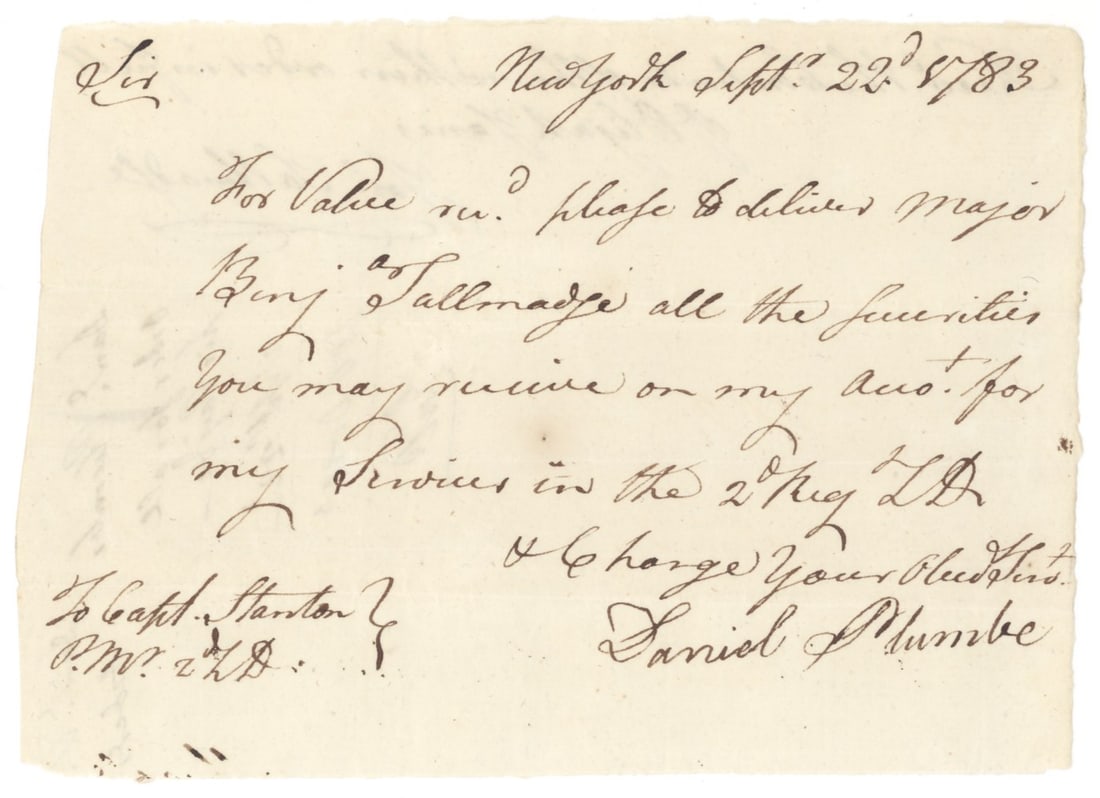 Sir New York Sept.r 22.d 1783
For Value rec.d please to deliver Major
Benj.an Tallmadge all the Securities
You may receive on my Acco.t for
my Services in the 2d Reg LD
& Charge Your Obed Serv.t
Daniel Plumbe
To Capt. Stanton
P. Mr. 2d LD.